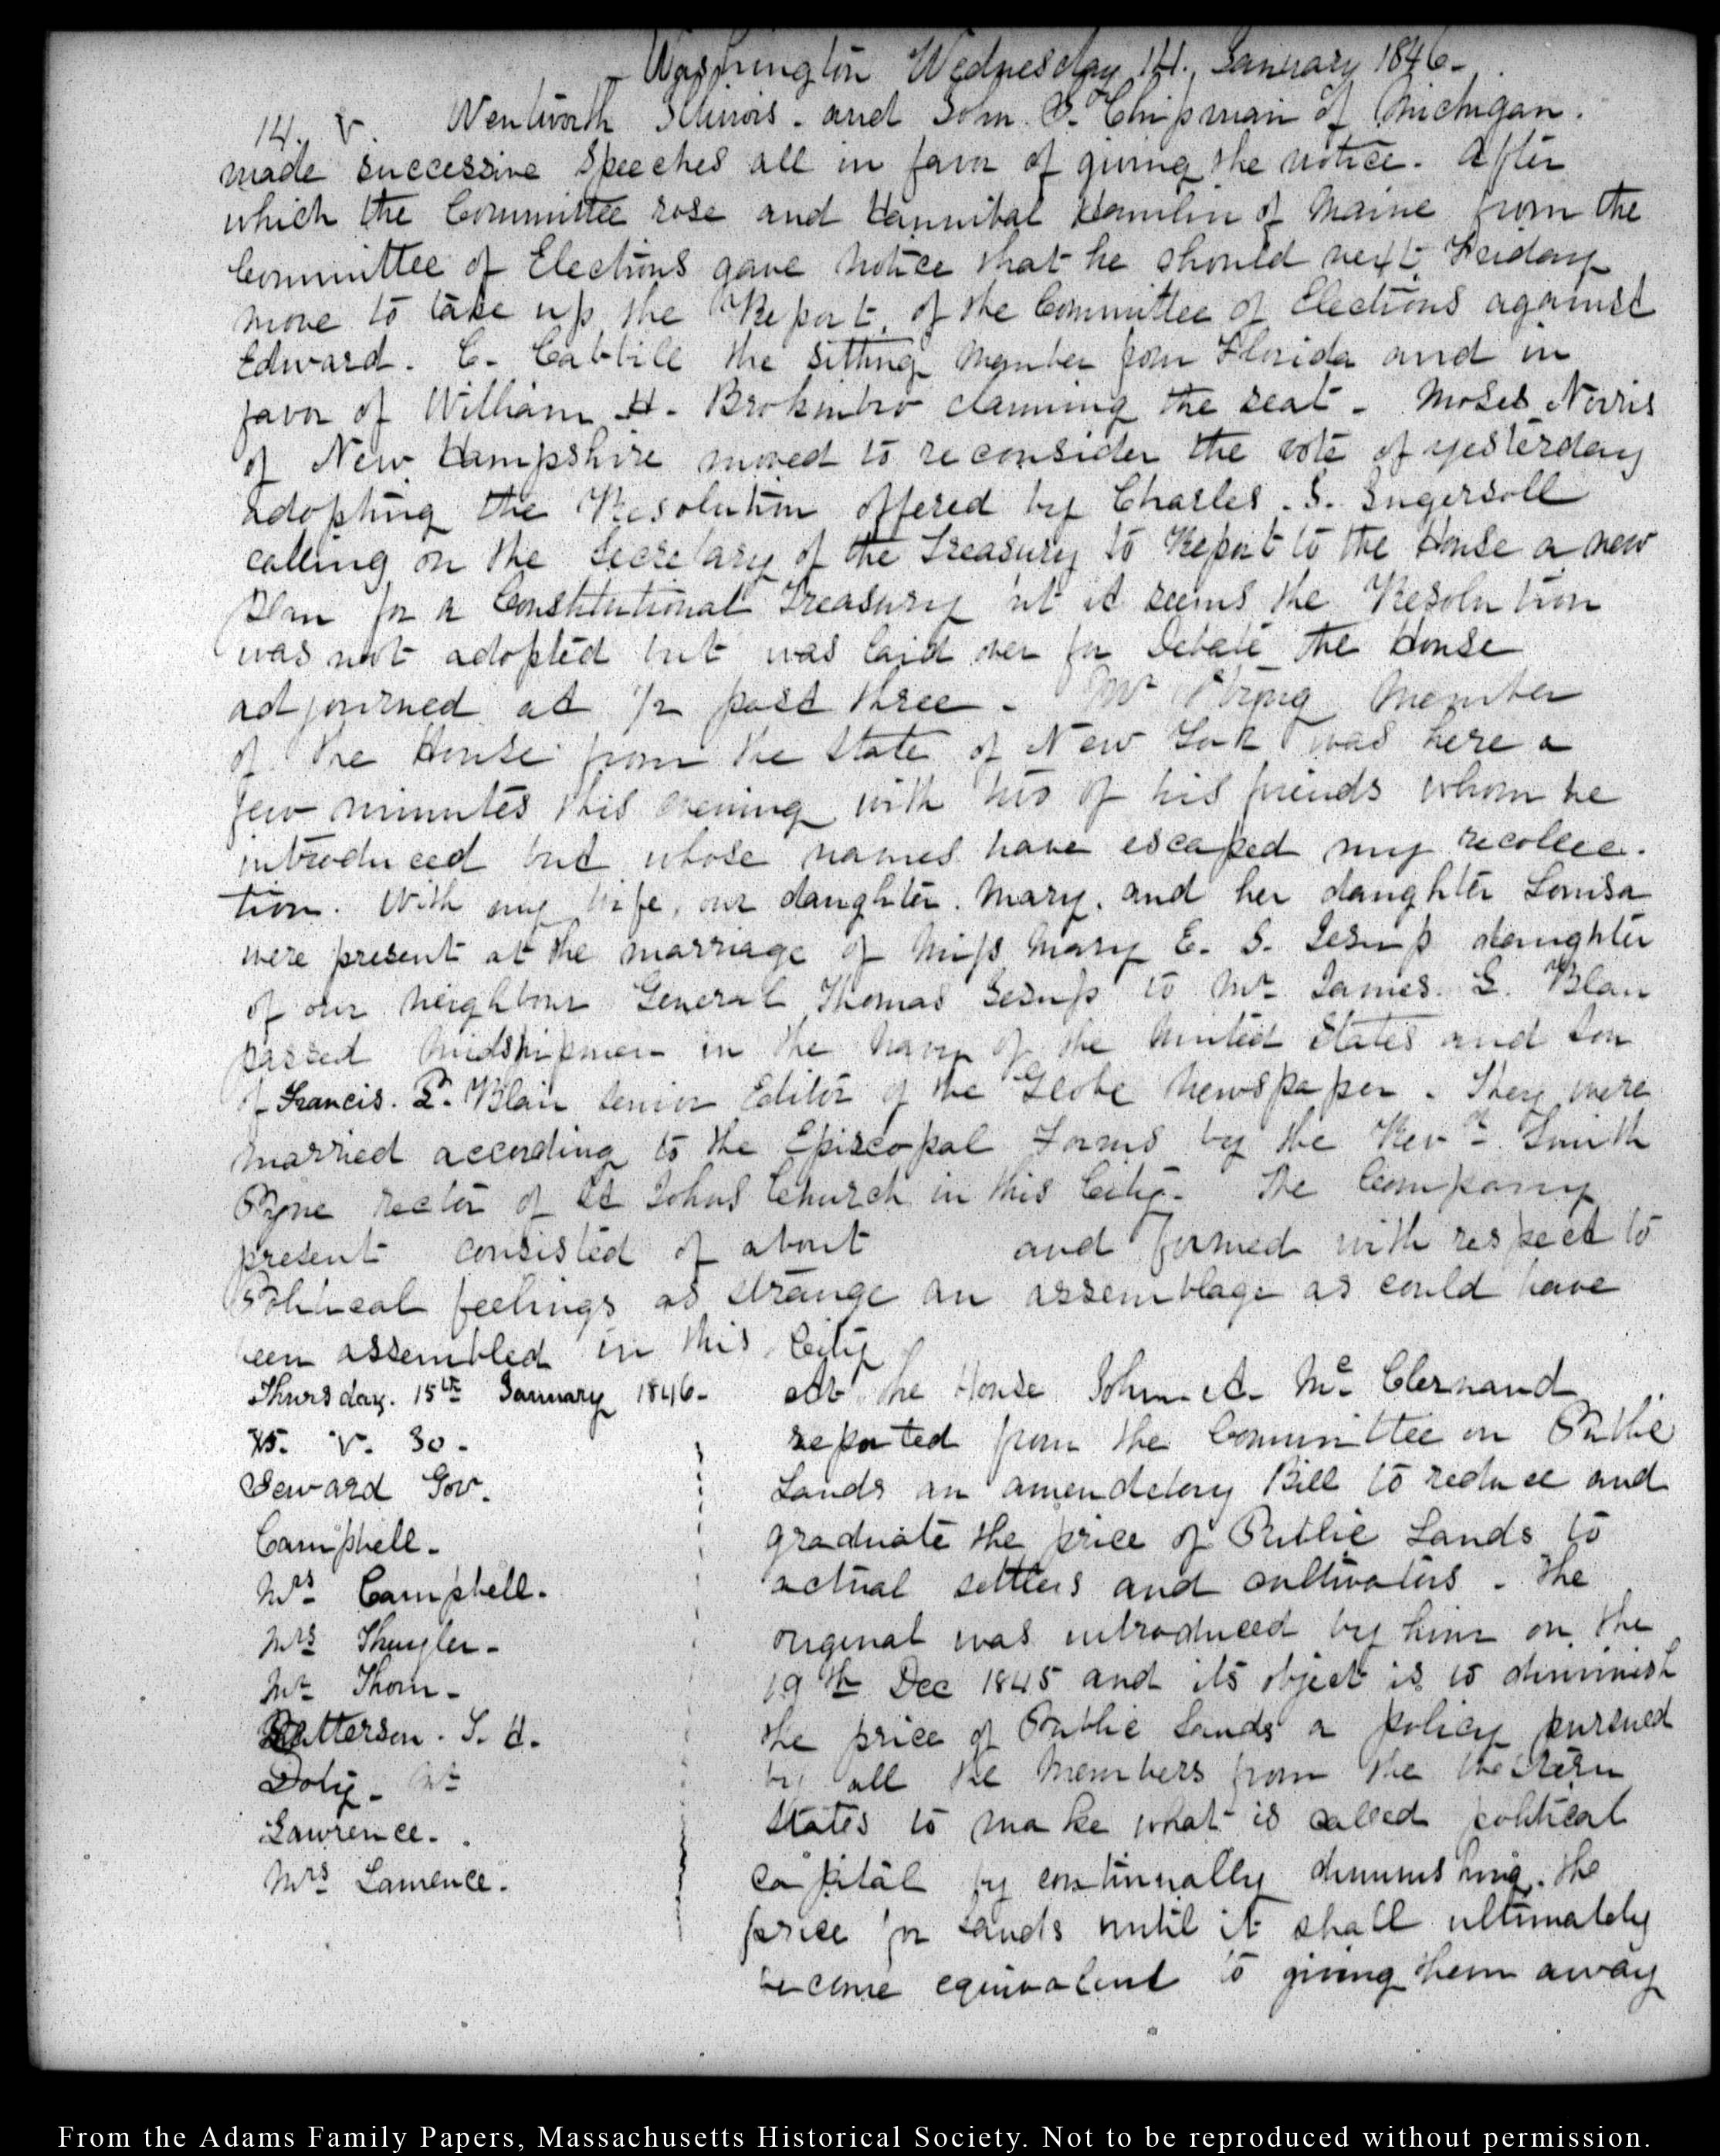 Washington Wednesday 14. January 1846-
14. V. Wentworth Illinois. and John S. Chipman of Michigan.
made successive speeches all in favor of giving the notice. After
which the Committee rose and Hannibal Hamlin of Maine from the
Committee of Elections gave notice that he should next Friday
move to take up the Report of the Committee of Elections against
Edward. C. Cabbile the sitting member from Florida and in
favor of William H. Brokinbro claiming the seat - Moses Norris
of New Hampshire moved to reconsider the vote of yesterday
adopting the Resolution offered by Charles. J. Ingersoll
calling on the Secretary of the Treasury to Report to the House a new
plan for a Constitutional Treasury but it seems the Resolution
was not adopted but was laid over for Debate the House
adjourned at 1/2 past three - Mr Strong Member
of the House from the State of New York was here a
few minutes this evening with two of his friends whom he
introduced but whose names have escaped my recollec-
tion. With my wife, our daughter. Mary. and her daughter Louisa
were present at the marriage of Miss Mary E. S. Jesup daughter
of our neighbour General Thomas Jesup to Mr James. L. Blair
passed Midshipman in the Navy of the United States and son
of Francis. P. Blair senior Editor of the Globe Newspaper - They were
married according to the Episcopal Forms by the Revd Smith
Pyne rector of St Johns Church in this City - The Company
present consisted of about and formed with respect to
Political feelings as strange an assemblage as could have
been assembled in this City
Thursday. 15th January 1846-
15. V. 30-
Seward Gov.
Campbell-
Mrs Campbell-
Mrs
Mr Thom-
Patterson. T. H.
Doty- Mr
Lawrence-
Mrs Lawrence.
At the House John A. McClernand
reported from the Committee on Public
Lands an amendatory Bill to reduce and
graduate the price of Public Lands to
actual settlers and cultivators - The
original was introduced by him on the
19th Dec 1845 and its object is to diminish
the price of Public Lands a policy pursued
by all the Members from the Western
States to make what is called political
capital by continually diminishing the
price for Lands until it shall ultimately
become equivalent to giving them away
From the Adams Family Papers, Massachusetts Historical Society. Not to be reproduced without permission.